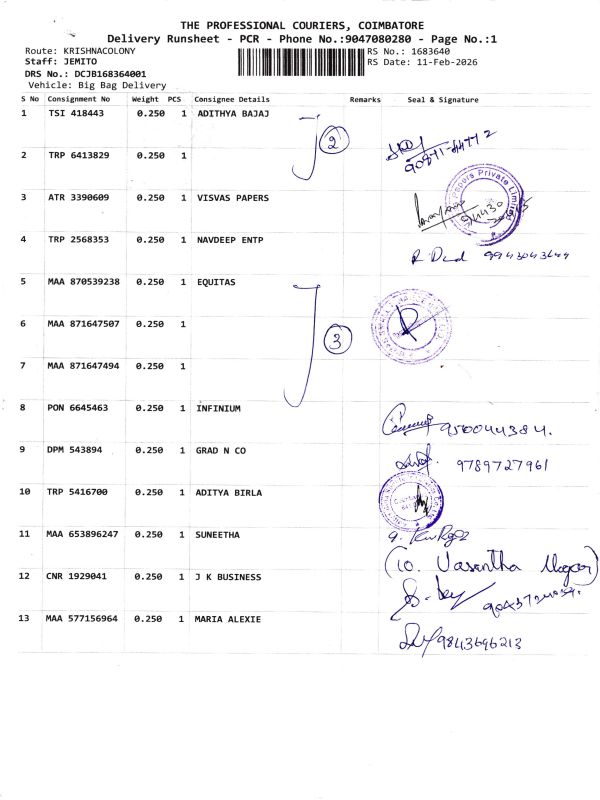 THE PROFESSIONAL COURIERS, COIMBATORE
Delivery Runsheet - PCR - Phone No.:9047080280 - Page No.:1
Route: KRISHNACOLONY
Staff: JEMITO
DRS No.: DCJB168364001
Vehicle: Big Bag Delivery
RS No.: 1683640
RS Date: 11-Feb-2026
S No Consignment No Weight PCS Consignee Details Remarks Seal & Signature
1 TSI 418443 0.250 1 ADITHYA BAJAJ
2
2 TRP 6413829 0.250 1
3 ATR 3390609 0.250 1 VISVAS PAPERS
Papers Private Limited
4 TRP 2568353 0.250 1 NAVDEEP ENTP
5 MAA 870539238 0.250 1 EQUITAS
6 MAA 871647507 0.250 1
3
7 MAA 871647494 0.250 1
8 PON 6645463 0.250 1 INFINIUM
950044384.
9 DPM 543894 0.250 1 GRAD N CO
9789727961
10 TRP 5416700 0.250 1 ADITYA BIRLA
11 MAA 653896247 0.250 1 SUNEETHA
(10. Vasantha Nagar)
12 CNR 1929041 0.250 1 J K BUSINESS
13 MAA 577156964 0.250 1 MARIA ALEXIE
9843696213